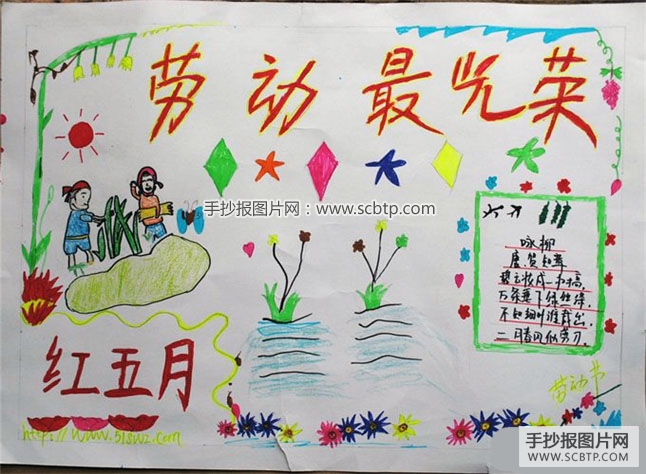 劳动最光荣
手抄报图片网：www.scbtp.com
咏柳
唐 贺知章
碧玉妆成一树高，
万条垂下绿丝绦，
不知细叶谁裁出，
二月春风似剪刀．
红五月
劳动节
http://www.51swz.com
手抄报图片网
WWW.SCBTP.COM